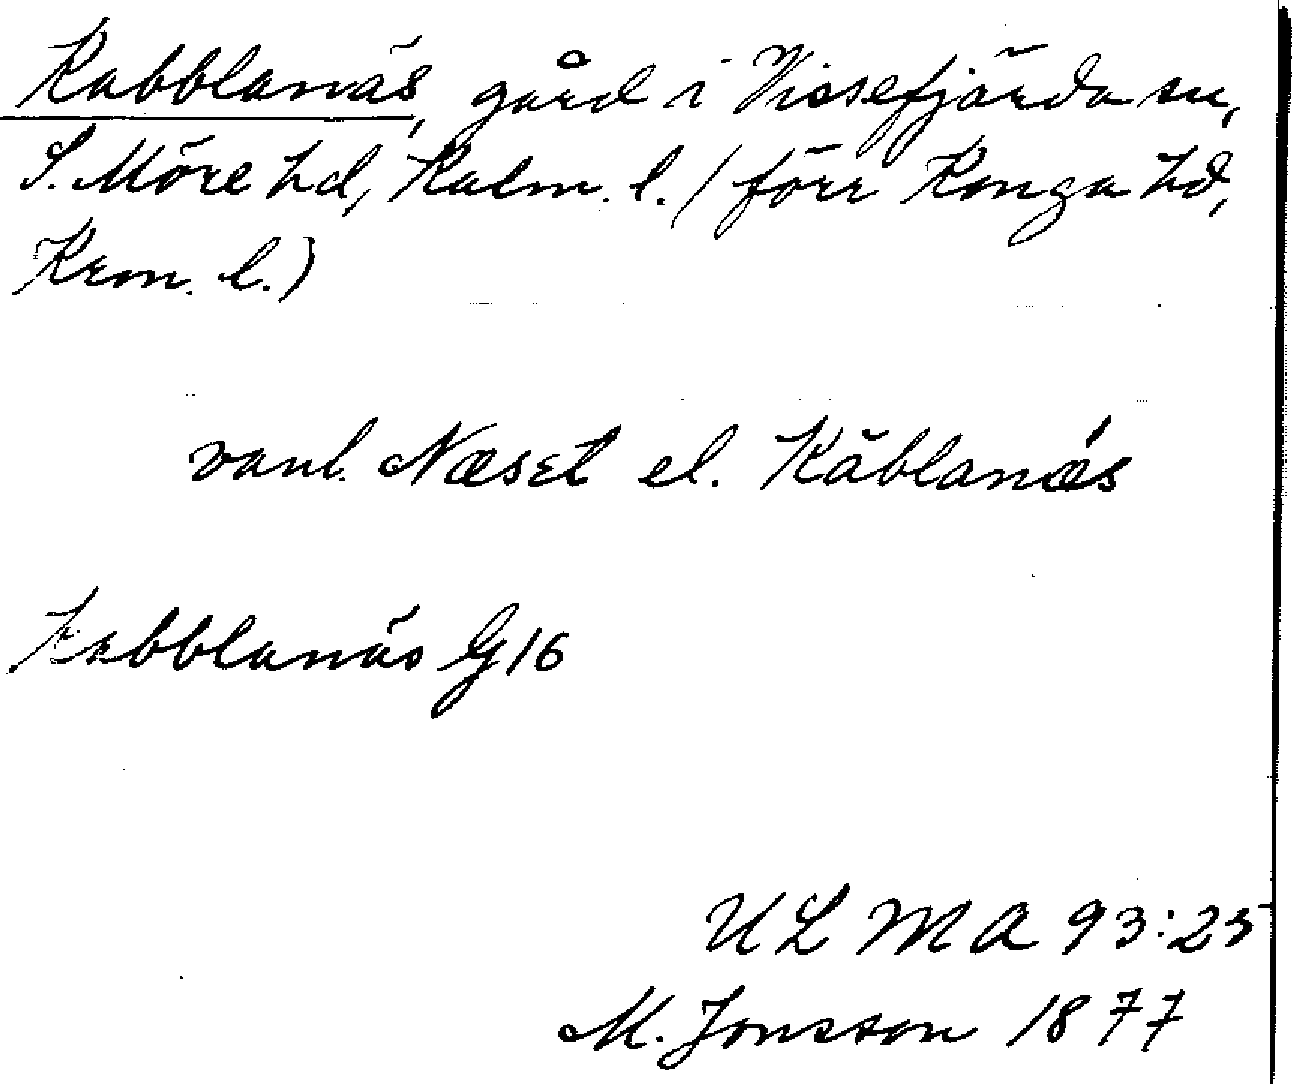 Kabblanäs, gård i Vissefjärda sn,
S. Möre hd, Kalm. l. (förr Konga hd,
Kron. l.)
vanl. Næset el. Kåblanǽs
Kabblanäs G16
ULMA 93:25
M. Jonsson 1877